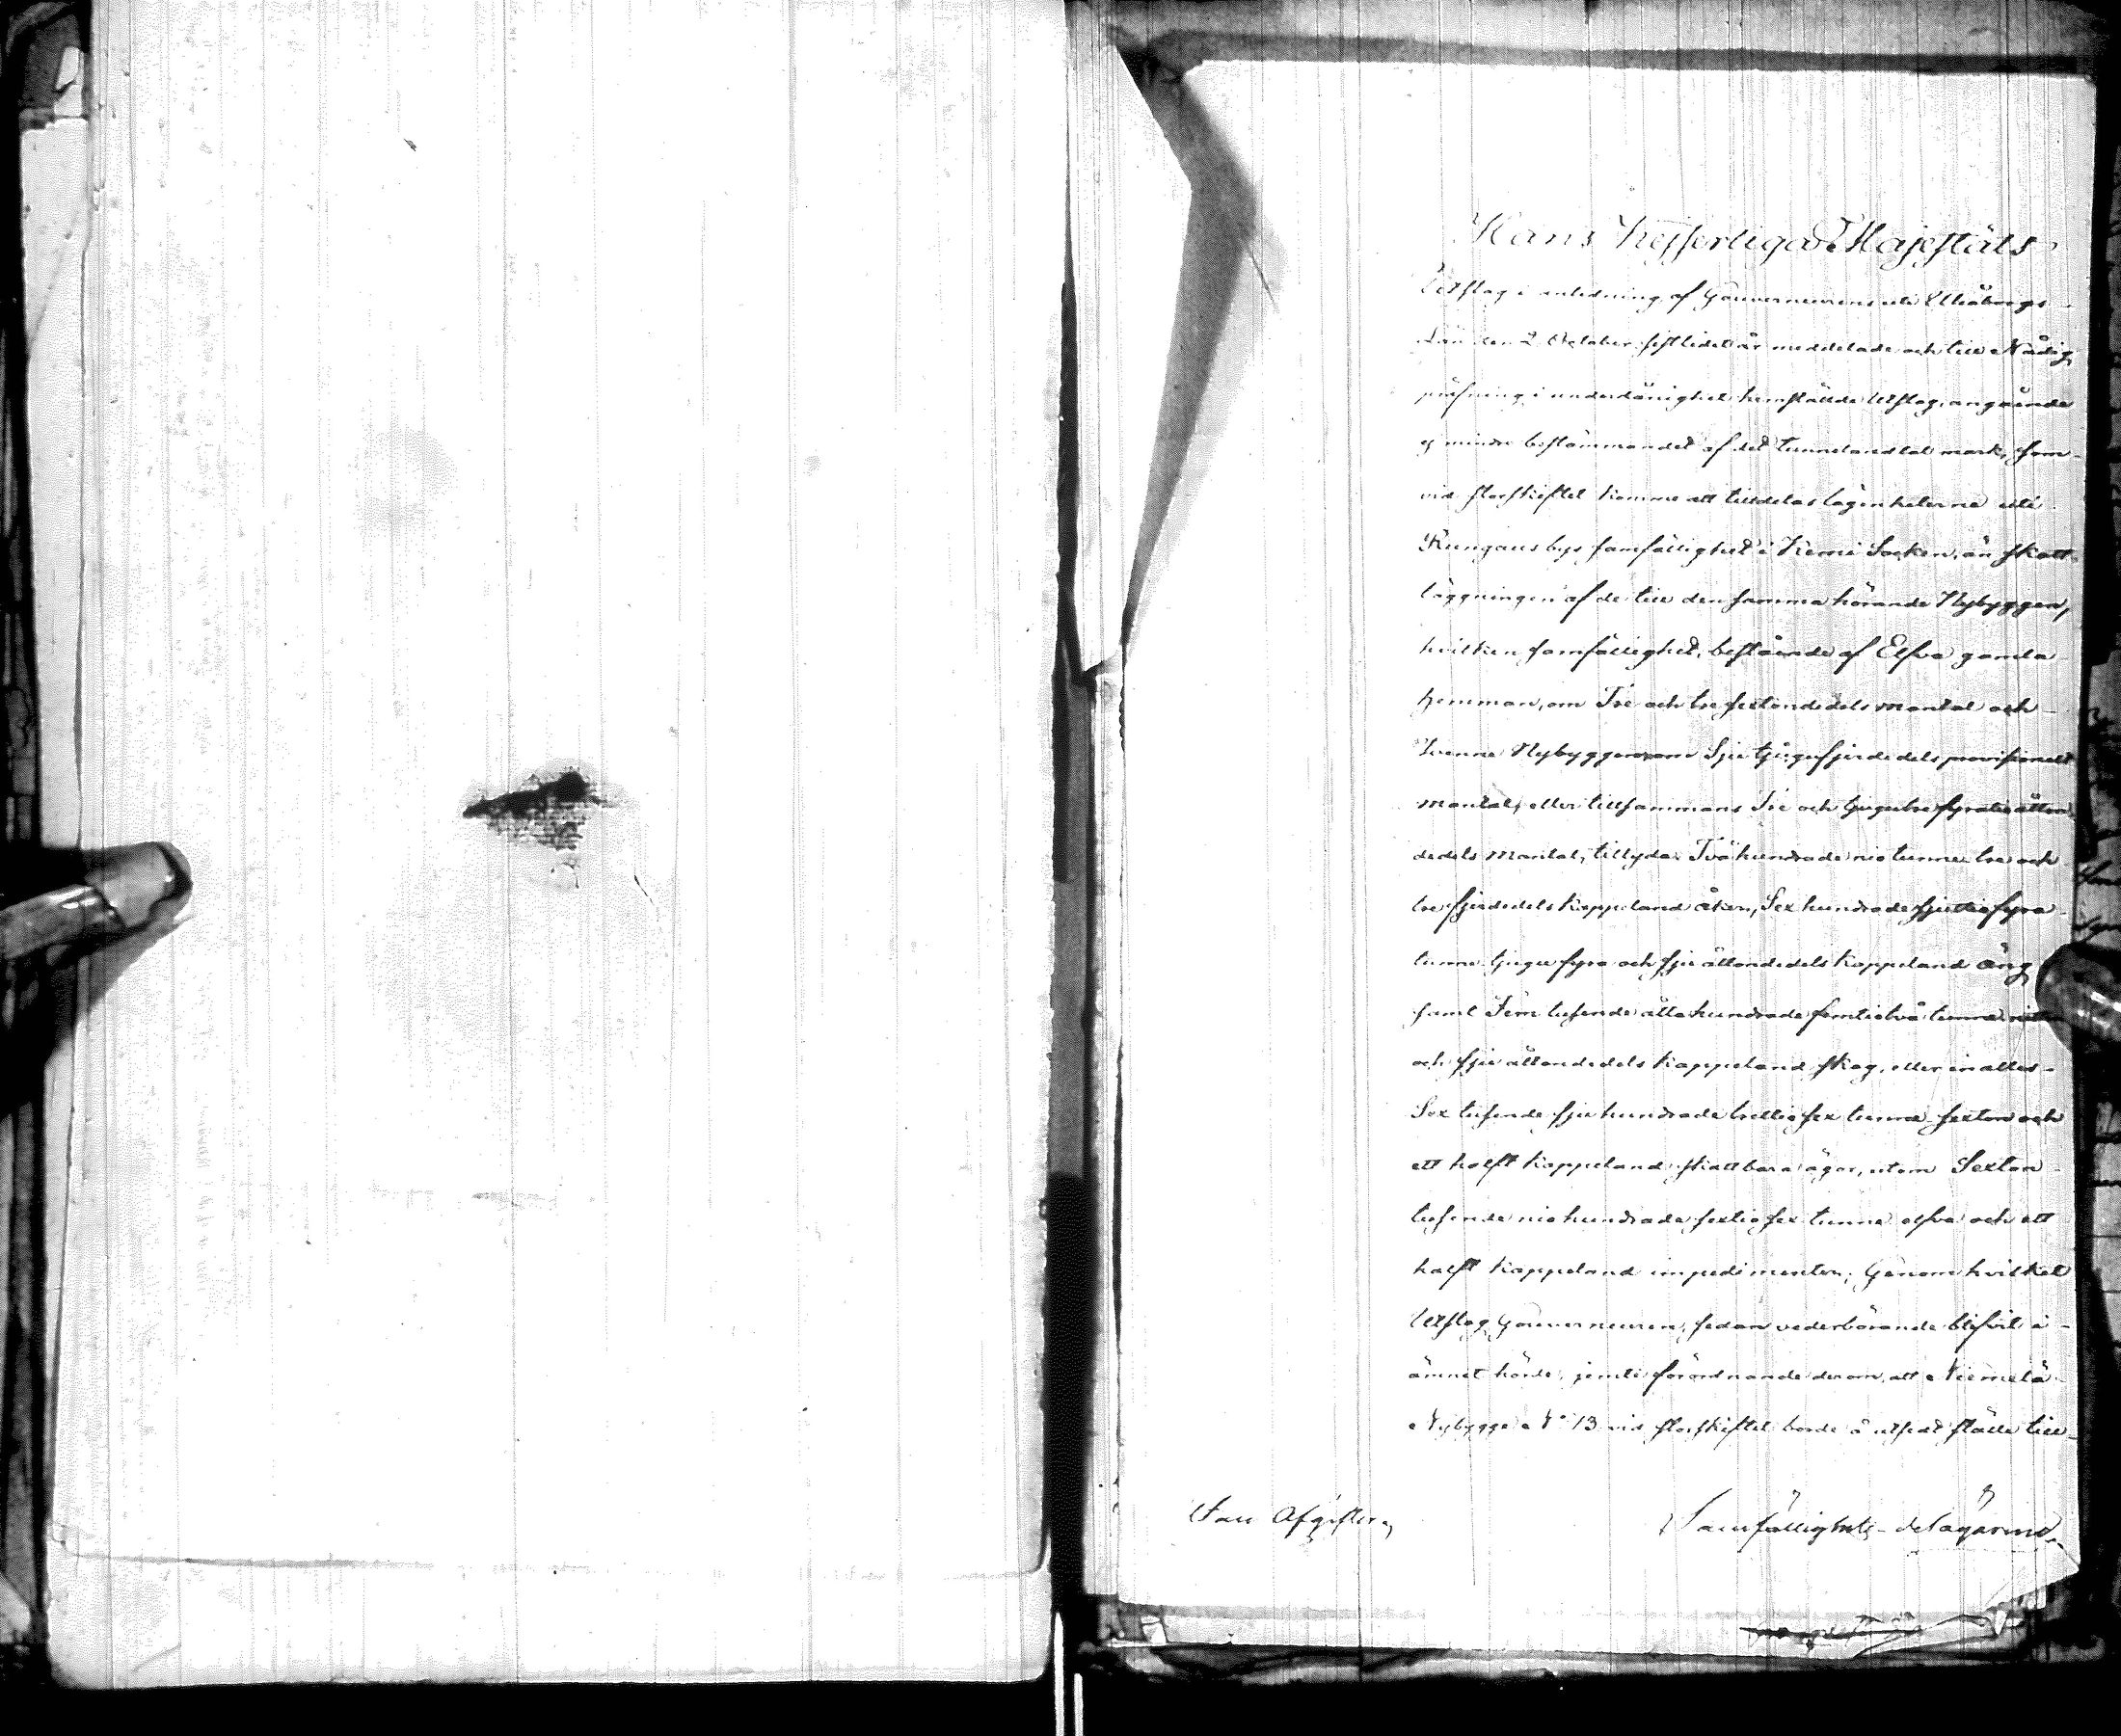 Hans Kejserliga Majestäts
Utslag i anledning af Gouverneurens uti Uleåborgs
Län den 2 October sistlidet år meddelade och till Nådig
pröfning i underdånighet hemstälde Utslag, angående
ej mindre bestämmandet af det tunnelandtal mark, som
vid storskiftet komme att tilldelas lägenheterne uti
Rungaus bys samfällighet i Kemi Socken, än skatt-
läggningen af de till densamma hörande Nybyggen,
hvilken samfällighet, bestående af Elfva gamla
hemman, om Tre och tre sextondedels mantal och
Tvenne Nybyggen, om Sju tjugufjerdedels provisionelt
mantal, eller tillsammans Tre och tjugutre fyratioåtton-
dedels mantal, tillyder Tvåhundrade nio tunne tre och
tre fjerdedels kappeland åker, Sex hundrade sjuttiofyra
tunne tjugufyra och sju åttondedels kappeland äng
samt Fem tusende åttahundrade femtiotvå tunne
och sju åttondedels kappeland skog, eller in alles
Sex tusende sju hundrade trettiosex tunne sexton och
ett halft kappeland skattbara ägor, utom Sexton
tusende niohundrade sextiosex tunne elfva och ett
halft kappeland impedimenter; Genom hvilket
Utslag Gouverneuren, sedan vederbörande blifvit i
ämnet hörde, jemte förordnande derom, att Niemelä
Nybygge N:o 13 vid storskiftet borde å utsedt ställe till-
Utan Afgifter,
Samfällighets-delägarne